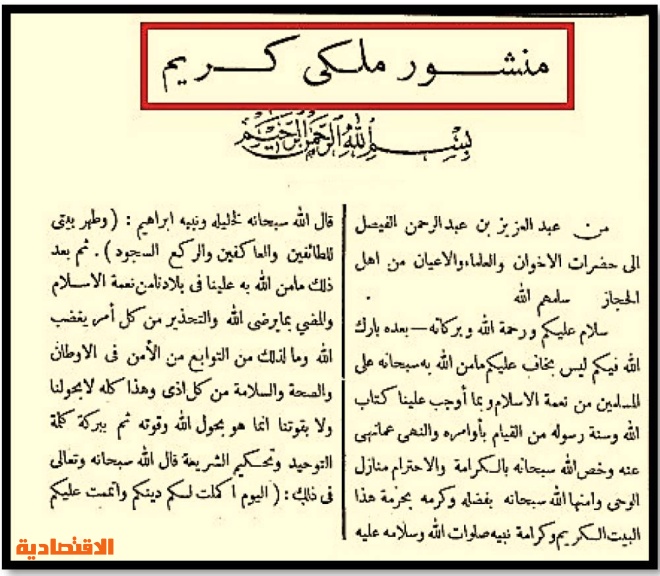 منشور ملكي كريم
بسم الله الرحمن الرحيم
من عبد العزيز بن عبد الرحمن الفيصل
الى حضرات الاخوان والعلماء والاعيان من اهل
الحجاز سلمهم الله
سلام عليكم ورحمة الله وبركاته — بعده بارك
الله فيكم ليس بخاف عليكم مامن الله به سبحانه على
المسلمين من نعمة الاسلام وبما أوجب علينا كتاب
الله وسنة رسوله من القيام بأوامره والنهى عمانهى
عنه وخص الله سبحانه بالكرامة والاحترام منازل
الوحى وامنها الله سبحانه بفضله وكرمه بحرمة هذا
البيت الكريم وكرامة نبيه صلوات الله وسلامه عليه
قال الله سبحانه لخليله ونبيه ابراهيم : ( وطهر بيتى
للطائفين والعاكفين والركع السجود ) . ثم بعد
ذلك مامن الله به علينا فى بلادنا من نعمة الاسلام
والمضي بما يرضى الله والتحذير من كل أمر يغضب
الله وما لذلك من التوابع من الأمن فى الاوطان
والصحة والسلامة من كل اذى وهذا كله لا بحولنا
ولا بقوتنا انما هو بحول الله وقوته ثم ببركة كلمة
التوحيد وتحكيم الشريعة قال الله سبحانه وتعالى
فى ذلك : ( اليوم اكملت لكم دينكم واتممت عليكم
الاقتصادية